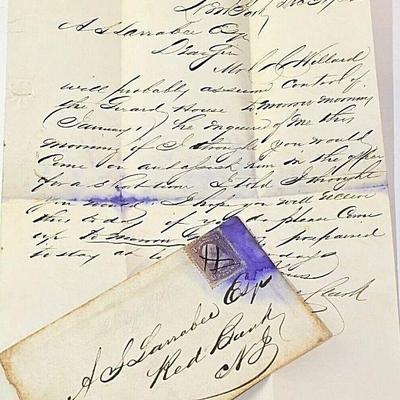 A S Larrabee Esq
Dear Sir
Mr. Willard
will probably assume control of
the Girard House tomorrow morning
(January 1) he enquired of me this
morning if I thought you would
come on and assist him in the office
for a short time I told I thought
you would I hope you will receive
this to day if you do please come
up to morrow prepared
to stay at days
Yours
Clark
A S Larrabee Esq
Red Bank
N J